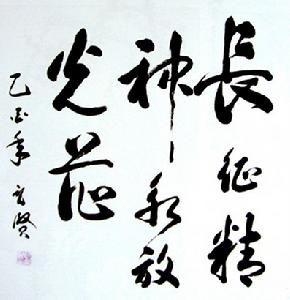 長征精
神永放
光芒
乙酉年